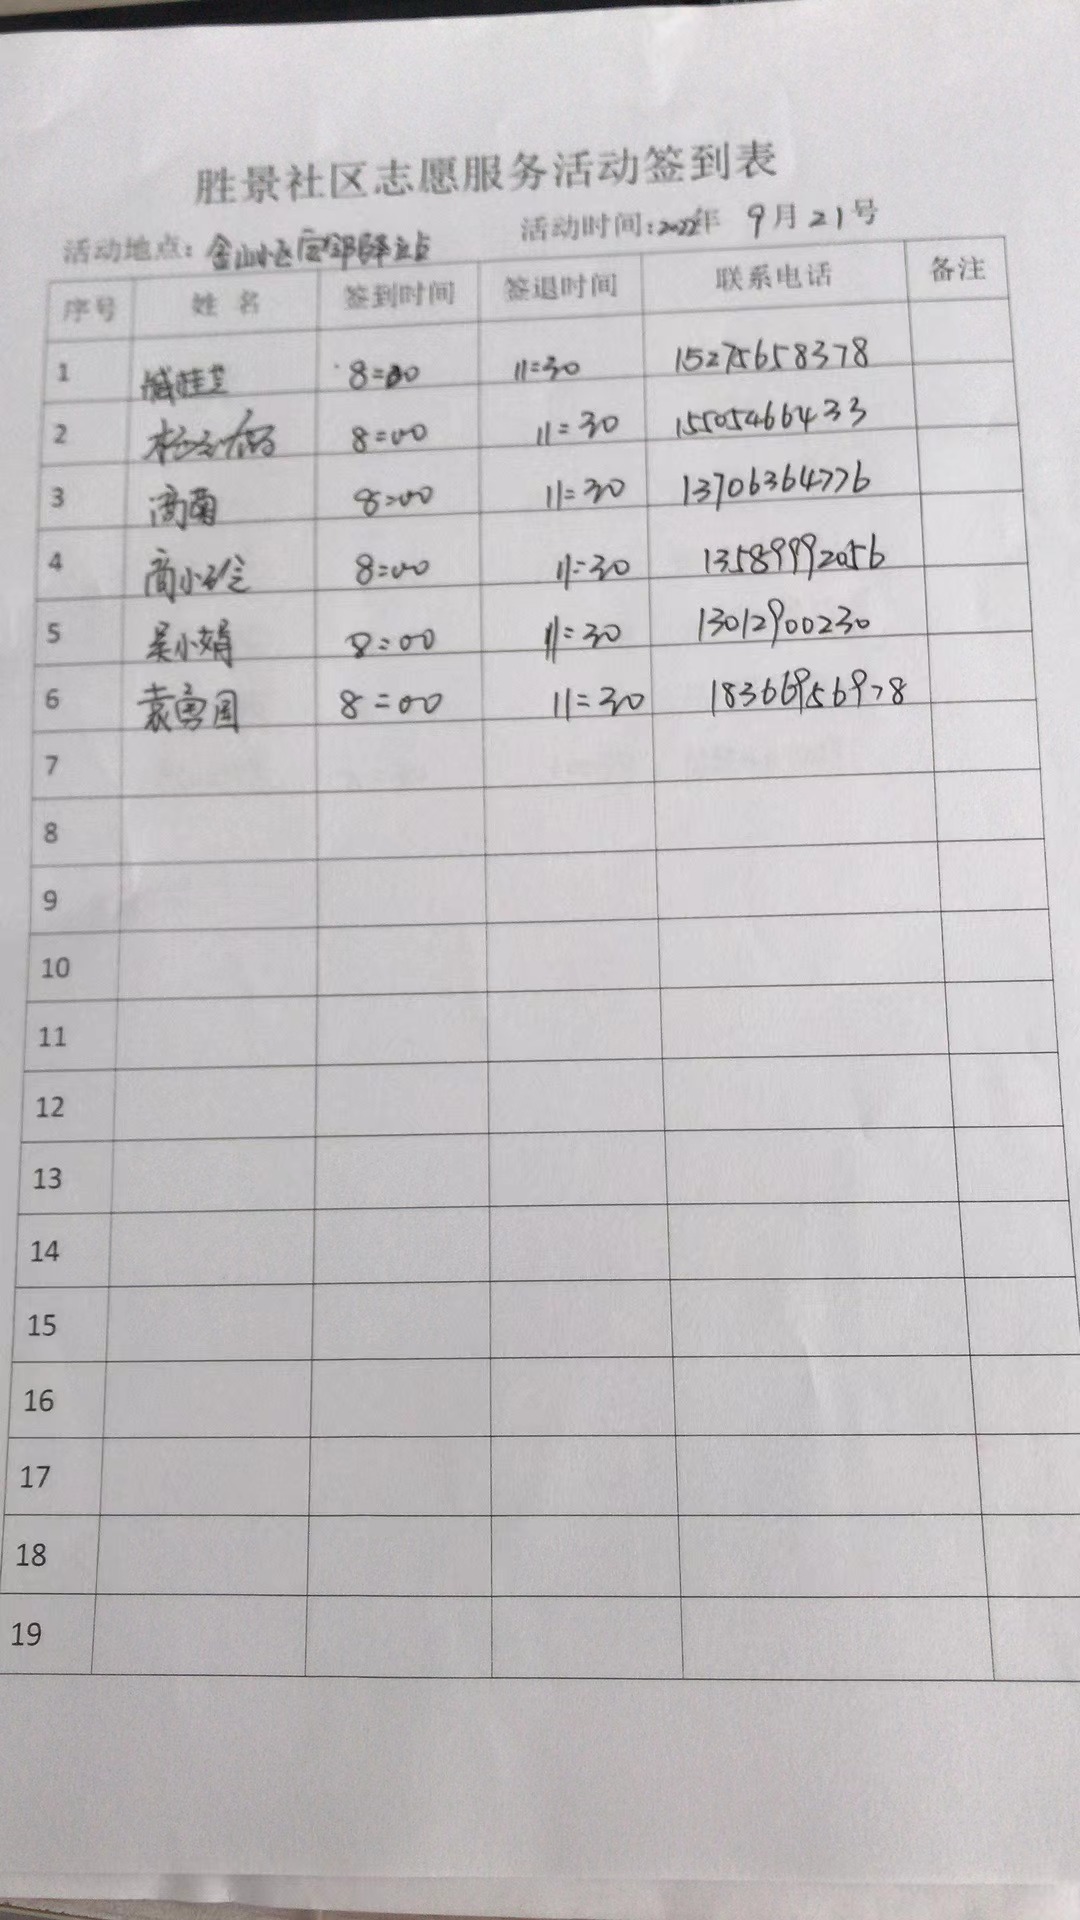 胜景社区志愿服务活动签到表
活动地点: 金山小区 邻驿站 活动时间:2022年 9月21号
序号 姓名 签到时间 签退时间 联系电话 备注
1 臧桂兰 8:00 11:30 15275658378
2 8:00 11:30 15505466433
3 高菊 8:00 11:30 13706364776
4 高小玲 8:00 11:30 13589992056
5 吴小娟 8:00 11:30 13012900230
6 袁勇国 8:00 11:30 18366956978
7
8
9
10
11
12
13
14
15
16
17
18
19